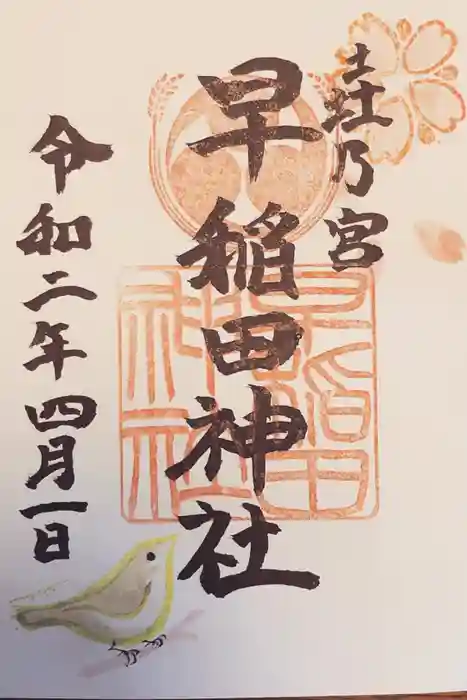 乃宮
早稲田神社
令和二年四月一日
早稲田
神社